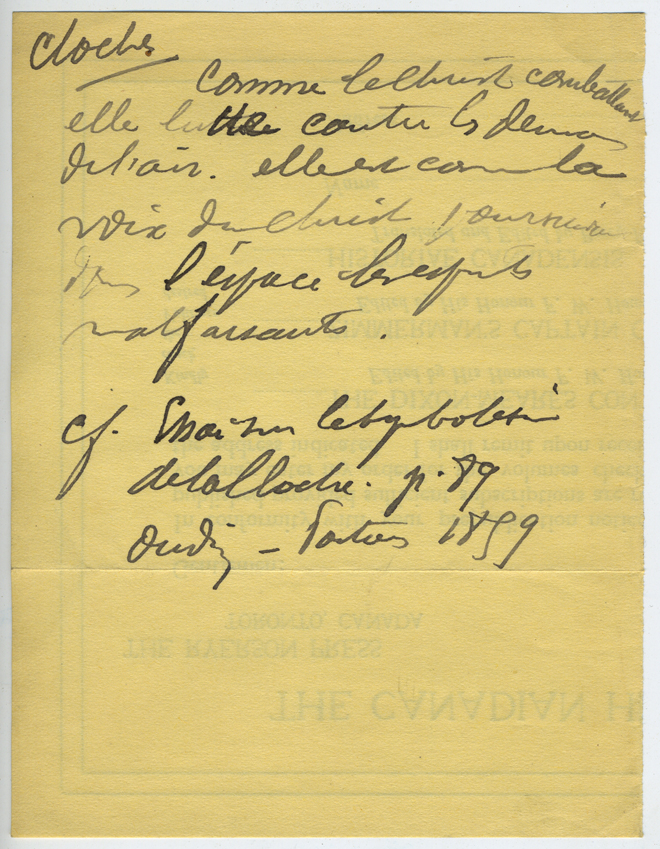 Cloches
Comme le Christ combattant
elle lutte contre les démons
de l'air. elle est comme la
voix du Christ poursuivant
dans l'éspace les esprits
malfaisants.
cf. Essai sur le symbolisme
de la Cloche. p. 89
Oudin – Poitiers 1859